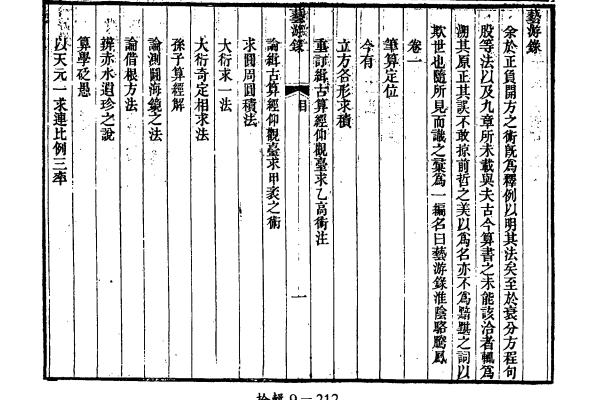 藝游錄
余於正負開方之術既為釋例以明其法矣至於衰分方程句
股等法以及九章所未載與夫古今算書之未能該洽者輒為
溯其原正其誤不敢掠前哲之美以為名亦不為黯黮之詞以
欺世也隨所見而識之彙為一編名曰藝游錄淮陰駱騰鳳
卷一
筆算定位
今有
立方各形求積
重訂緝古算經仰觀臺求乙高術注
藝游錄 目 一
論緝古算經仰觀臺求甲袤之術
求圓周圓積法
大衍求一法
大衍奇定相求法
孫子算經解
論測圓海鏡之法
論借根方法
辨赤水遺珍之說
算學砭愚
以天元一求連比例三率
輯 9－212